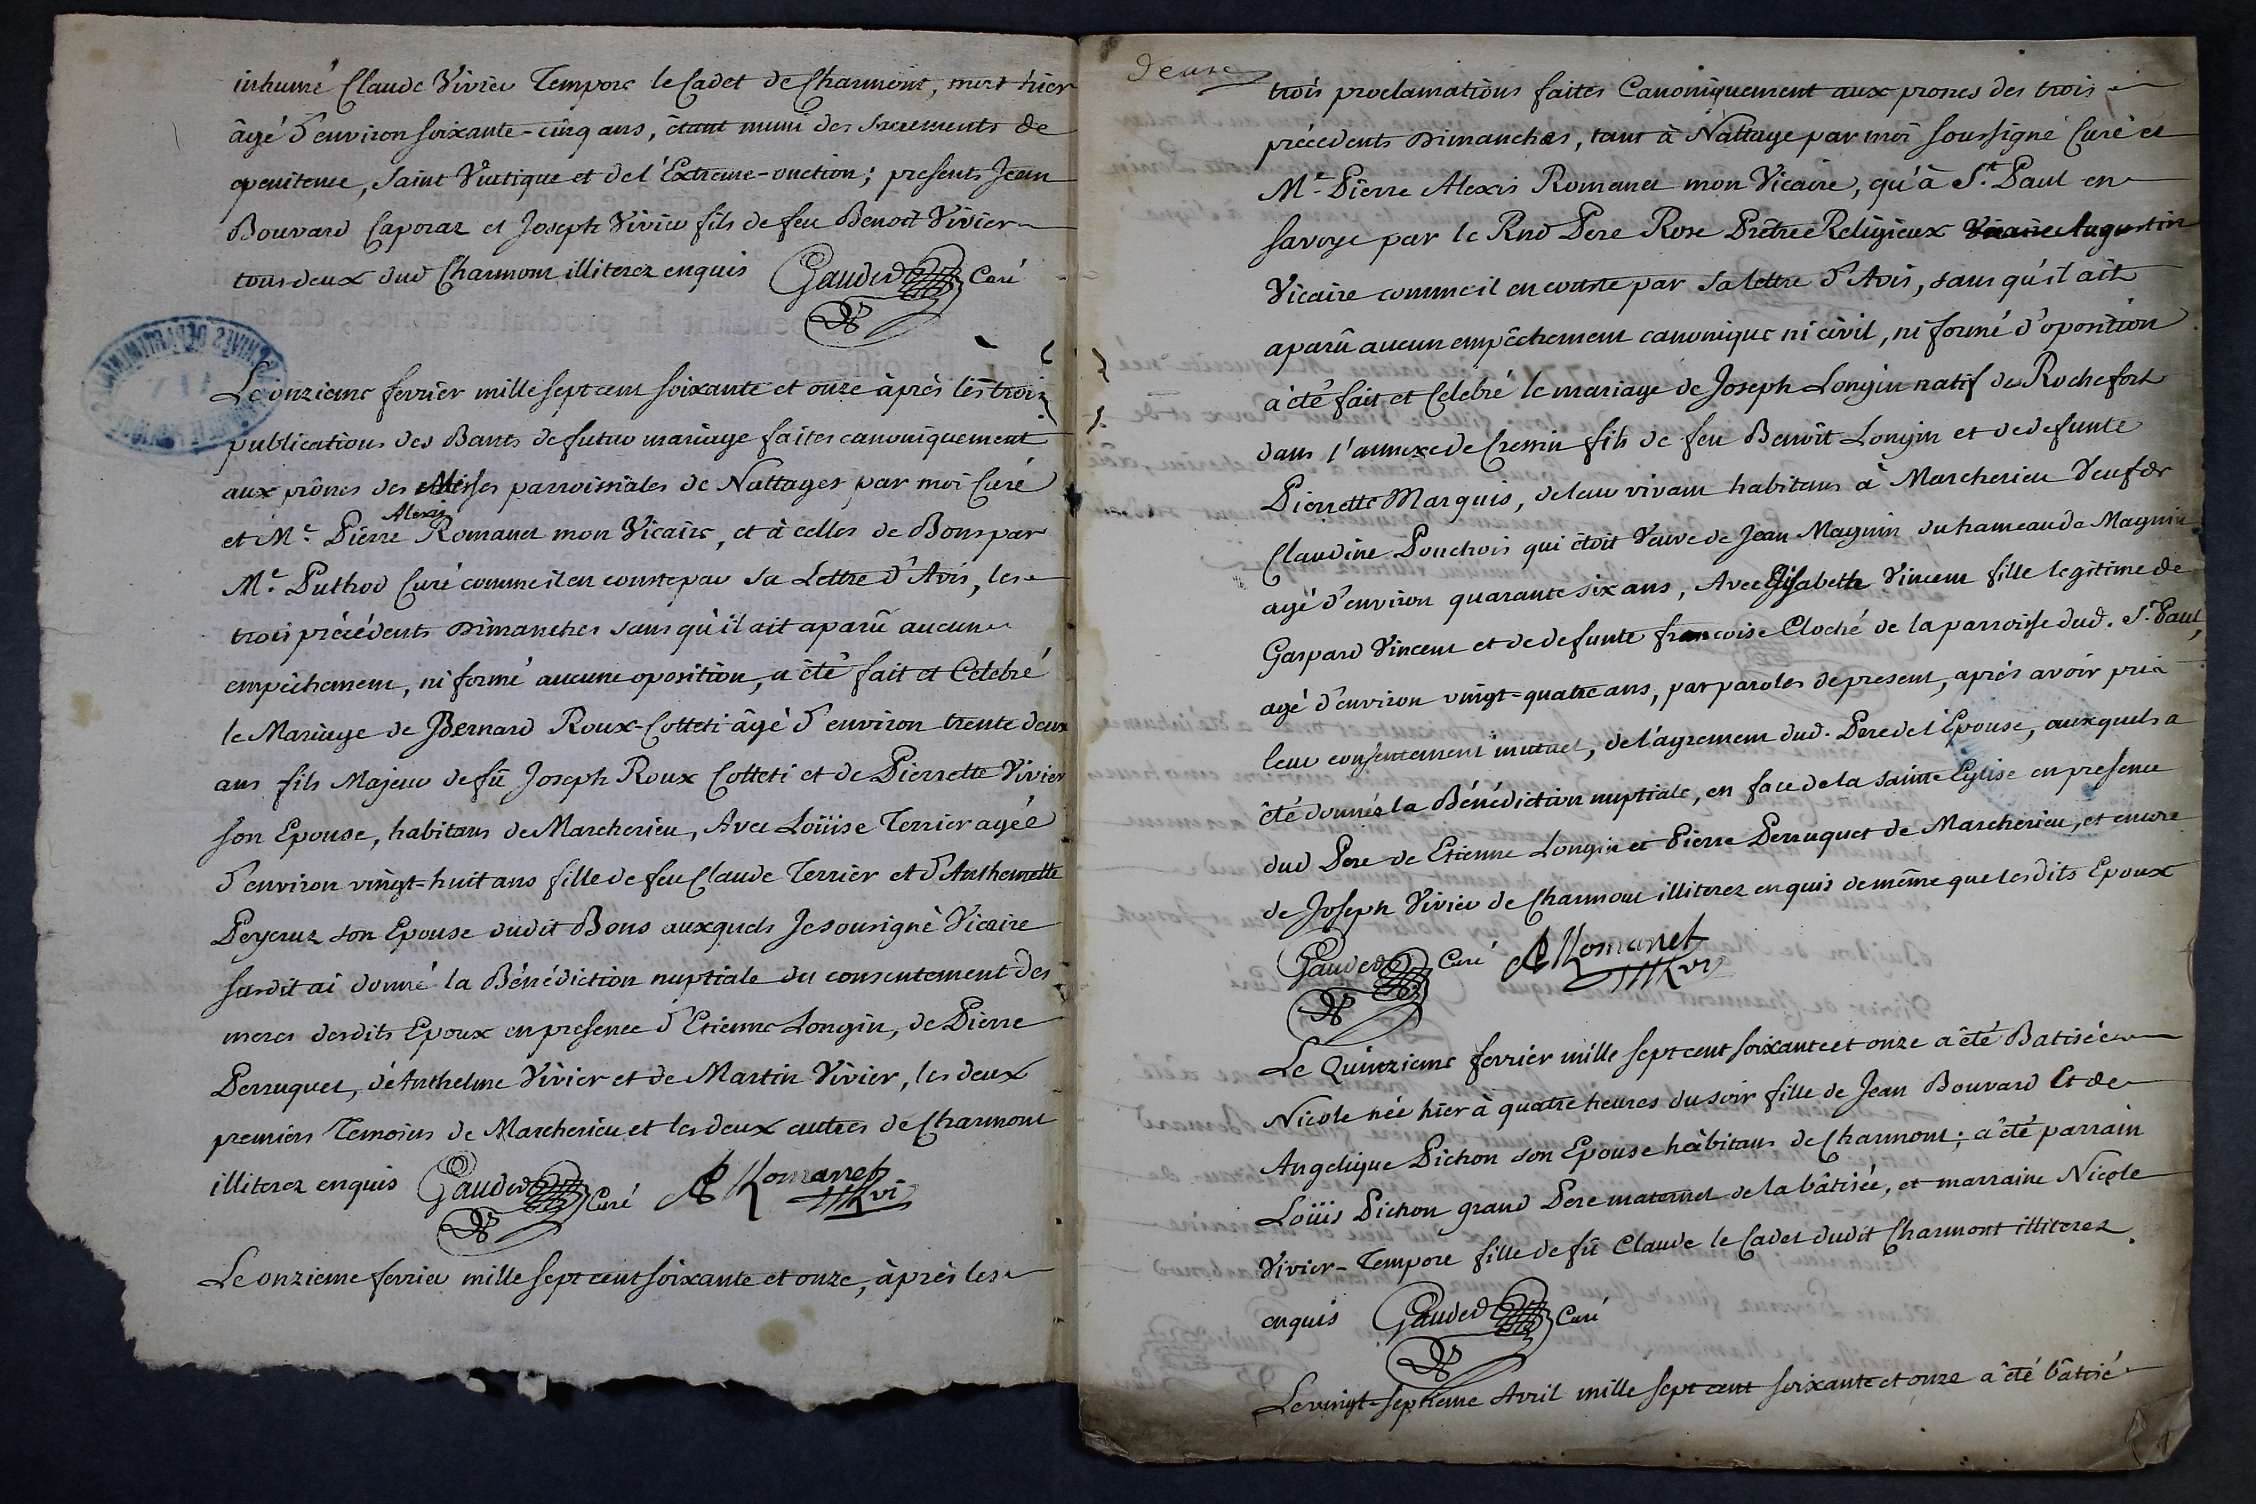 inhumé Claude Vivier Tempore le Cadet de Charmont, mort hier
âgé d'environ soixante-cinq ans, étant muni des sacrements de
penitence, saint Viatique et de l'Extreme-onction; presents Jean
Bouvard Caporaz et Joseph Vivier fils de feu Benoit Vivier
tous deux dud Charmont illiterez enquis Gauderd Curé
Le onzieme fevrier mille sept cent soixante et onze àprès les trois
publications des Bants de futur mariage faites canoniquement
aux prônes des Messes parroissiales de Nattages par moi Curé
et Me. Pierre Alexis Romanet mon Vicaire, et à celles de Bons par
Me. Puthod Curé comme il en conste par sa Lettre d'Avis, les
trois précédents Dimanches sans qu'il ait aparû aucun
empêchement, ni formé aucune oposition, a êté fait et Celebré
le Mariage de Bernard Roux-Colleti âgé d'environ trente deux
ans fils Majeur de fû Joseph Roux Colleti et de Pierrette Vivier
son Epouse, habitans de Marcherieu, Avec Loüise Terrier agéé
d'environ vingt-huit ans fille de feu Claude Terrier et d'Anthemette
Peycruz son Epouse dudit Bons auxquels Je sousigné Vicaire
susdit ai donné la Bénédiction nuptiale du consentement des
meres desdits Epoux en presence d'Etienne Longin, de Pierre
Perruquet, d'Anthelme Vivier et de Martin Vivier, les deux
premiers Temoins de Marcherieu et les deux autres de Charmont
illiterez enquis Gauderd Curé A Romanet vi
Le onzieme fevrier mille sept cent soixante et onze, àprès les
deuxe
trois proclamations faites Canoniquement aux prones des trois
précedents Dimanches, tant à Nattage par moi soussigné Curé et
Me. Pierre Alexis Romanet mon Vicaire, qu'à St. Paul en
savoye par le Rnd Pere Rose Prêtre Religieux Augustin
Vicaire comme il en conste par sa lettre d'Avis, sans qu'il ait
aparû aucun empêchement canonique ni civil, ni formé d'oposition
à été fait et Celebré le mariage de Joseph Longin natif de Rochefort
dans l'annexe de Cressin fils de feu Benoît Longin et de defunte
Pierrette Marquis, de leur vivant habitans à Marcherieu Veuf de
Claudine Ponchois qui étoit Veuve de Jean Magnin du hameau de Magnin
agé d'environ quarante six ans, Avec Elisabeth Vincent fille legitime de
Gaspard Vincent et de defunte françoise Cloché de la parroisse dud. St. Paul,
agé d'environ vingt-quatre ans, par paroles de present, aprés avoir pris
leur consentement mutuel, de l'agrement dud. Pere de l'Epouse, auxquels a
êté donnés la Bénédiction nuptiale, en face de la sainte Eglise en presence
dud Pere de Etienne Longin et Pierre Perruquet de Marcherieu, et encore
de Joseph Vivier de Charmont illiterez enquis de même que lesdits Epoux
Gauderd Curé A Romanet vi
Le Quinzieme fevrier mille sept cent soixante et onze a êté Batisée
Nicole née hier à quatre heures du soir fille de Jean Bouvard Et de
Angelique Pichon son Epouse hàbitans de Charmont; a êté parrain
Loüis Pichon grand Pere maternel de la bâtisée, et marraine Nicole
Vivier-Tempore fille de fû Claude le Cadet dudit Charmont illiterez
enquis Gauderd Curé
Le vingt-septieme Avril mille sept cent soixante et onze a êté bâtisé